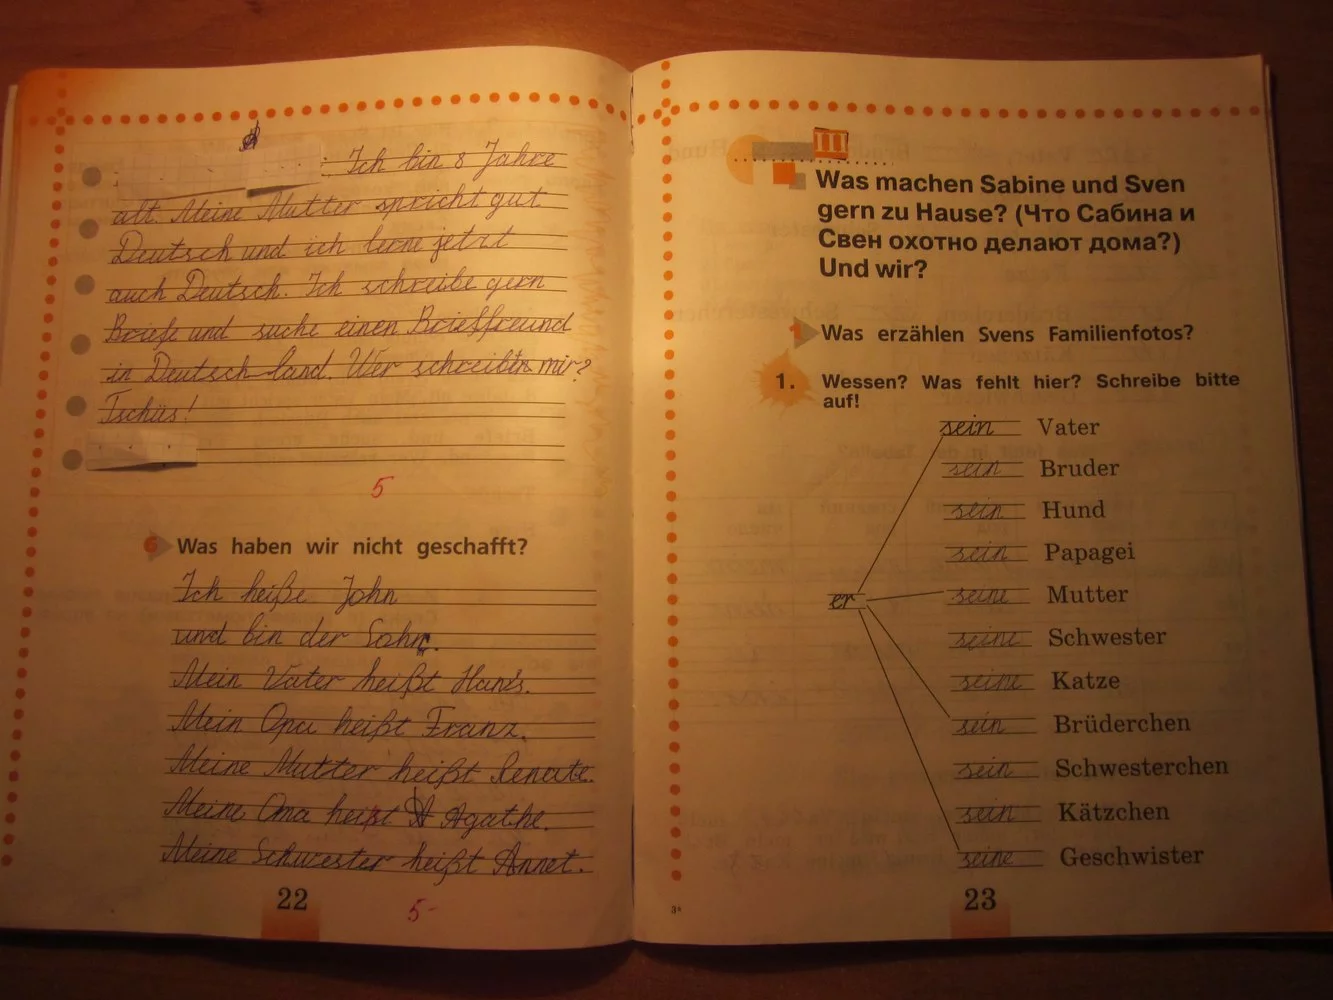 : Ich bin 8 Jahre
alt. Meine Mutter spricht gut
Deutsch und ich lerne jetzt
auch Deutsch. Ich schreibe gern
Briefe und suche einen Brieffreund
in Deutsch-land. Wer schreibt mir?
Tschüs!
5
6 Was haben wir nicht geschafft?
Ich heiße John
und bin der Sohn.
Mein Vater heißt Hans.
Mein Opa heißt Franz.
Meine Mutter heißt Renate.
Meine Oma heißt Agathe.
Meine Schwester heißt Annet.
22
5-
III
Was machen Sabine und Sven
gern zu Hause? (Что Сабина и
Свен охотно делают дома?)
Und wir?
1 Was erzählen Svens Familienfotos?
1. Wessen? Was fehlt hier? Schreibe bitte
auf!
sein Vater
sein Bruder
sein Hund
sein Papagei
er
seine Mutter
seine Schwester
seine Katze
sein Brüderchen
sein Schwesterchen
sein Kätzchen
seine Geschwister
3*
23